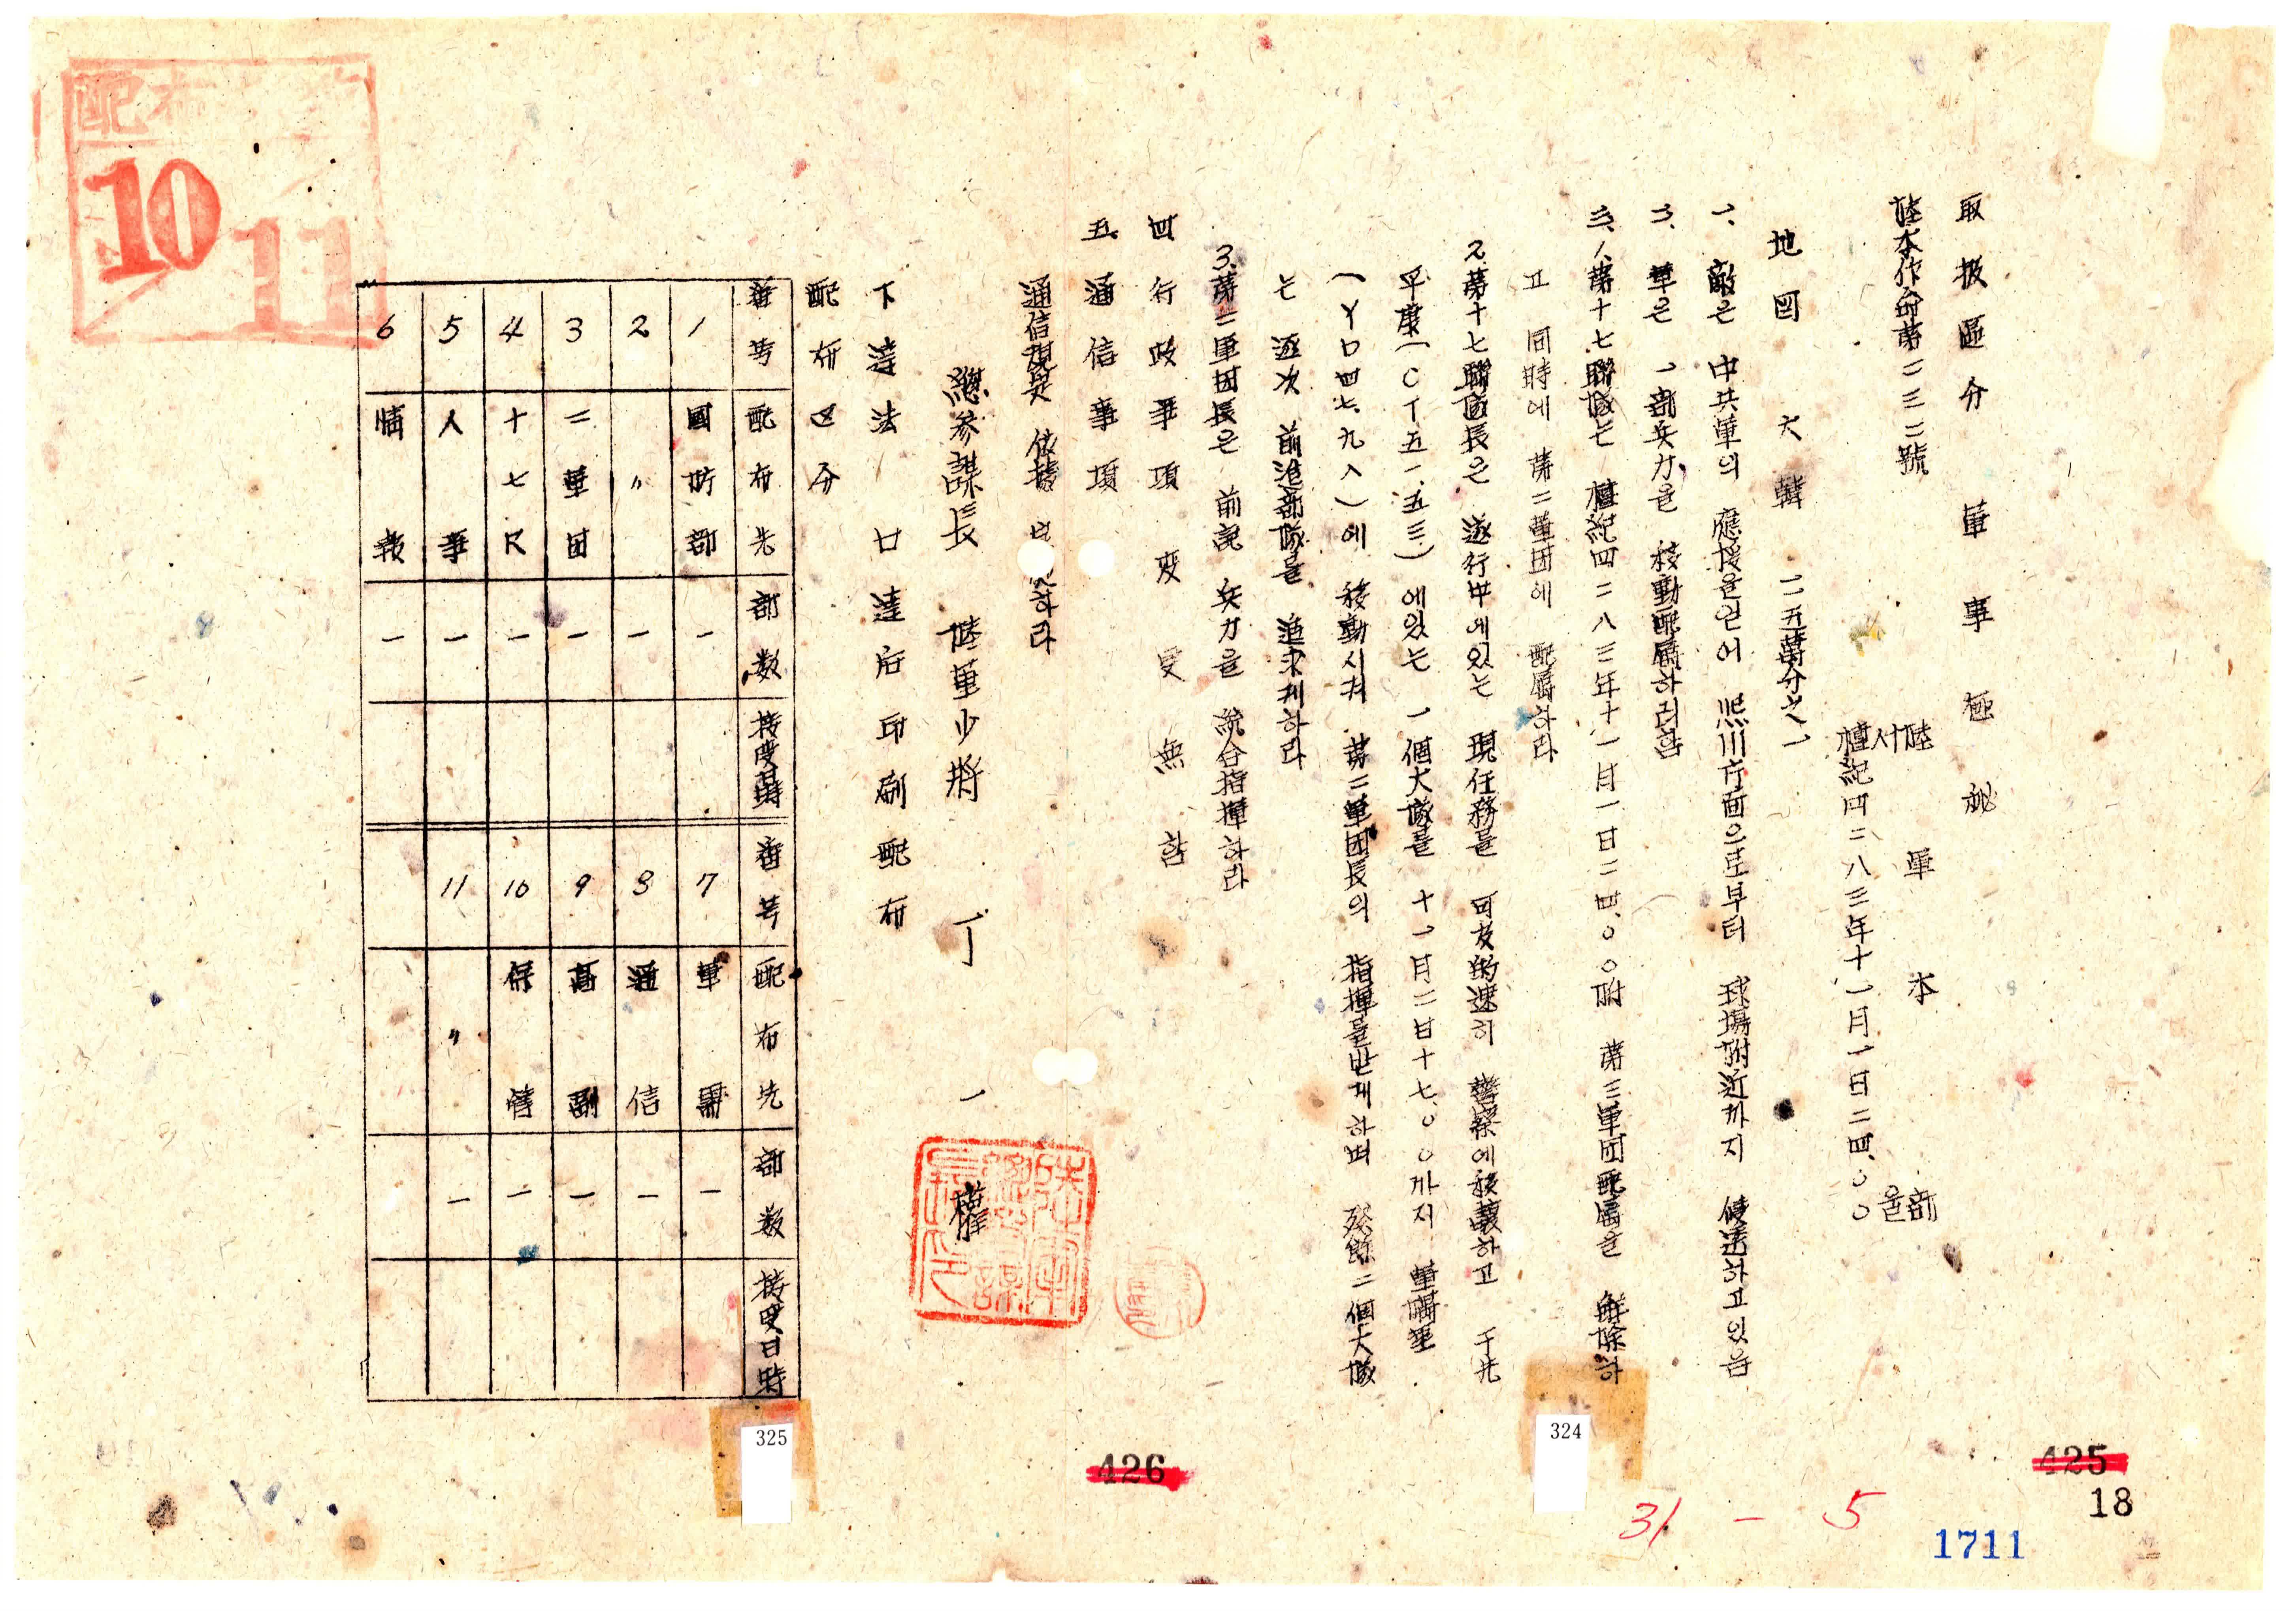 取扱區分 軍事極秘
陸本作命第二三二號
陸軍本部
서울
檀紀四二八三年十一月一日二四.○○
地図 大韓 二五萬分之一
一、敵은 中共軍의 應援을얻어 熙川方面으로부터 球場附近까지 侵透하고있음
二、軍은 一部兵力을 移動配屬하려함
三、1、第十七聯隊는 檀紀四二八三年十一月一日二四.○○附 第三軍団配屬을 解除하
고 同時에 第二軍団에 配屬하라
2、第十七聯隊長은 遂行中에있는 現任務를 可及的速히 警察에移讓하고 于先
平康(CT五一.五三)에있는 一個大隊를 十一月二日十七.○○까지 軍隅里
(YD四七.九八)에 移動시켜 第二軍団長의 指揮를받게하며 殘餘二個大隊
는 逐次 前進部隊를 追求케하라
3、第二軍団長은 前記 兵力을 統合指揮하라
四 行政事項 変更無함
五 通信事項
通信規定 依據 하라
總参謀長 陸軍少將 丁一權
下達法 廿達后印刷配布
配布区分
番号 配布先 部数 接受日時 番号 配布先 部数 接受日時
1 國防部 一 7 軍需 一
2 〃 一 8 通信 一
3 二軍団 一 9 高副 一
4 十七R 一 10 作 一
5 人事 一 11 〃 一
6 情報 一
配布
10
11
325
324
426
425
18
31 - 5
1711